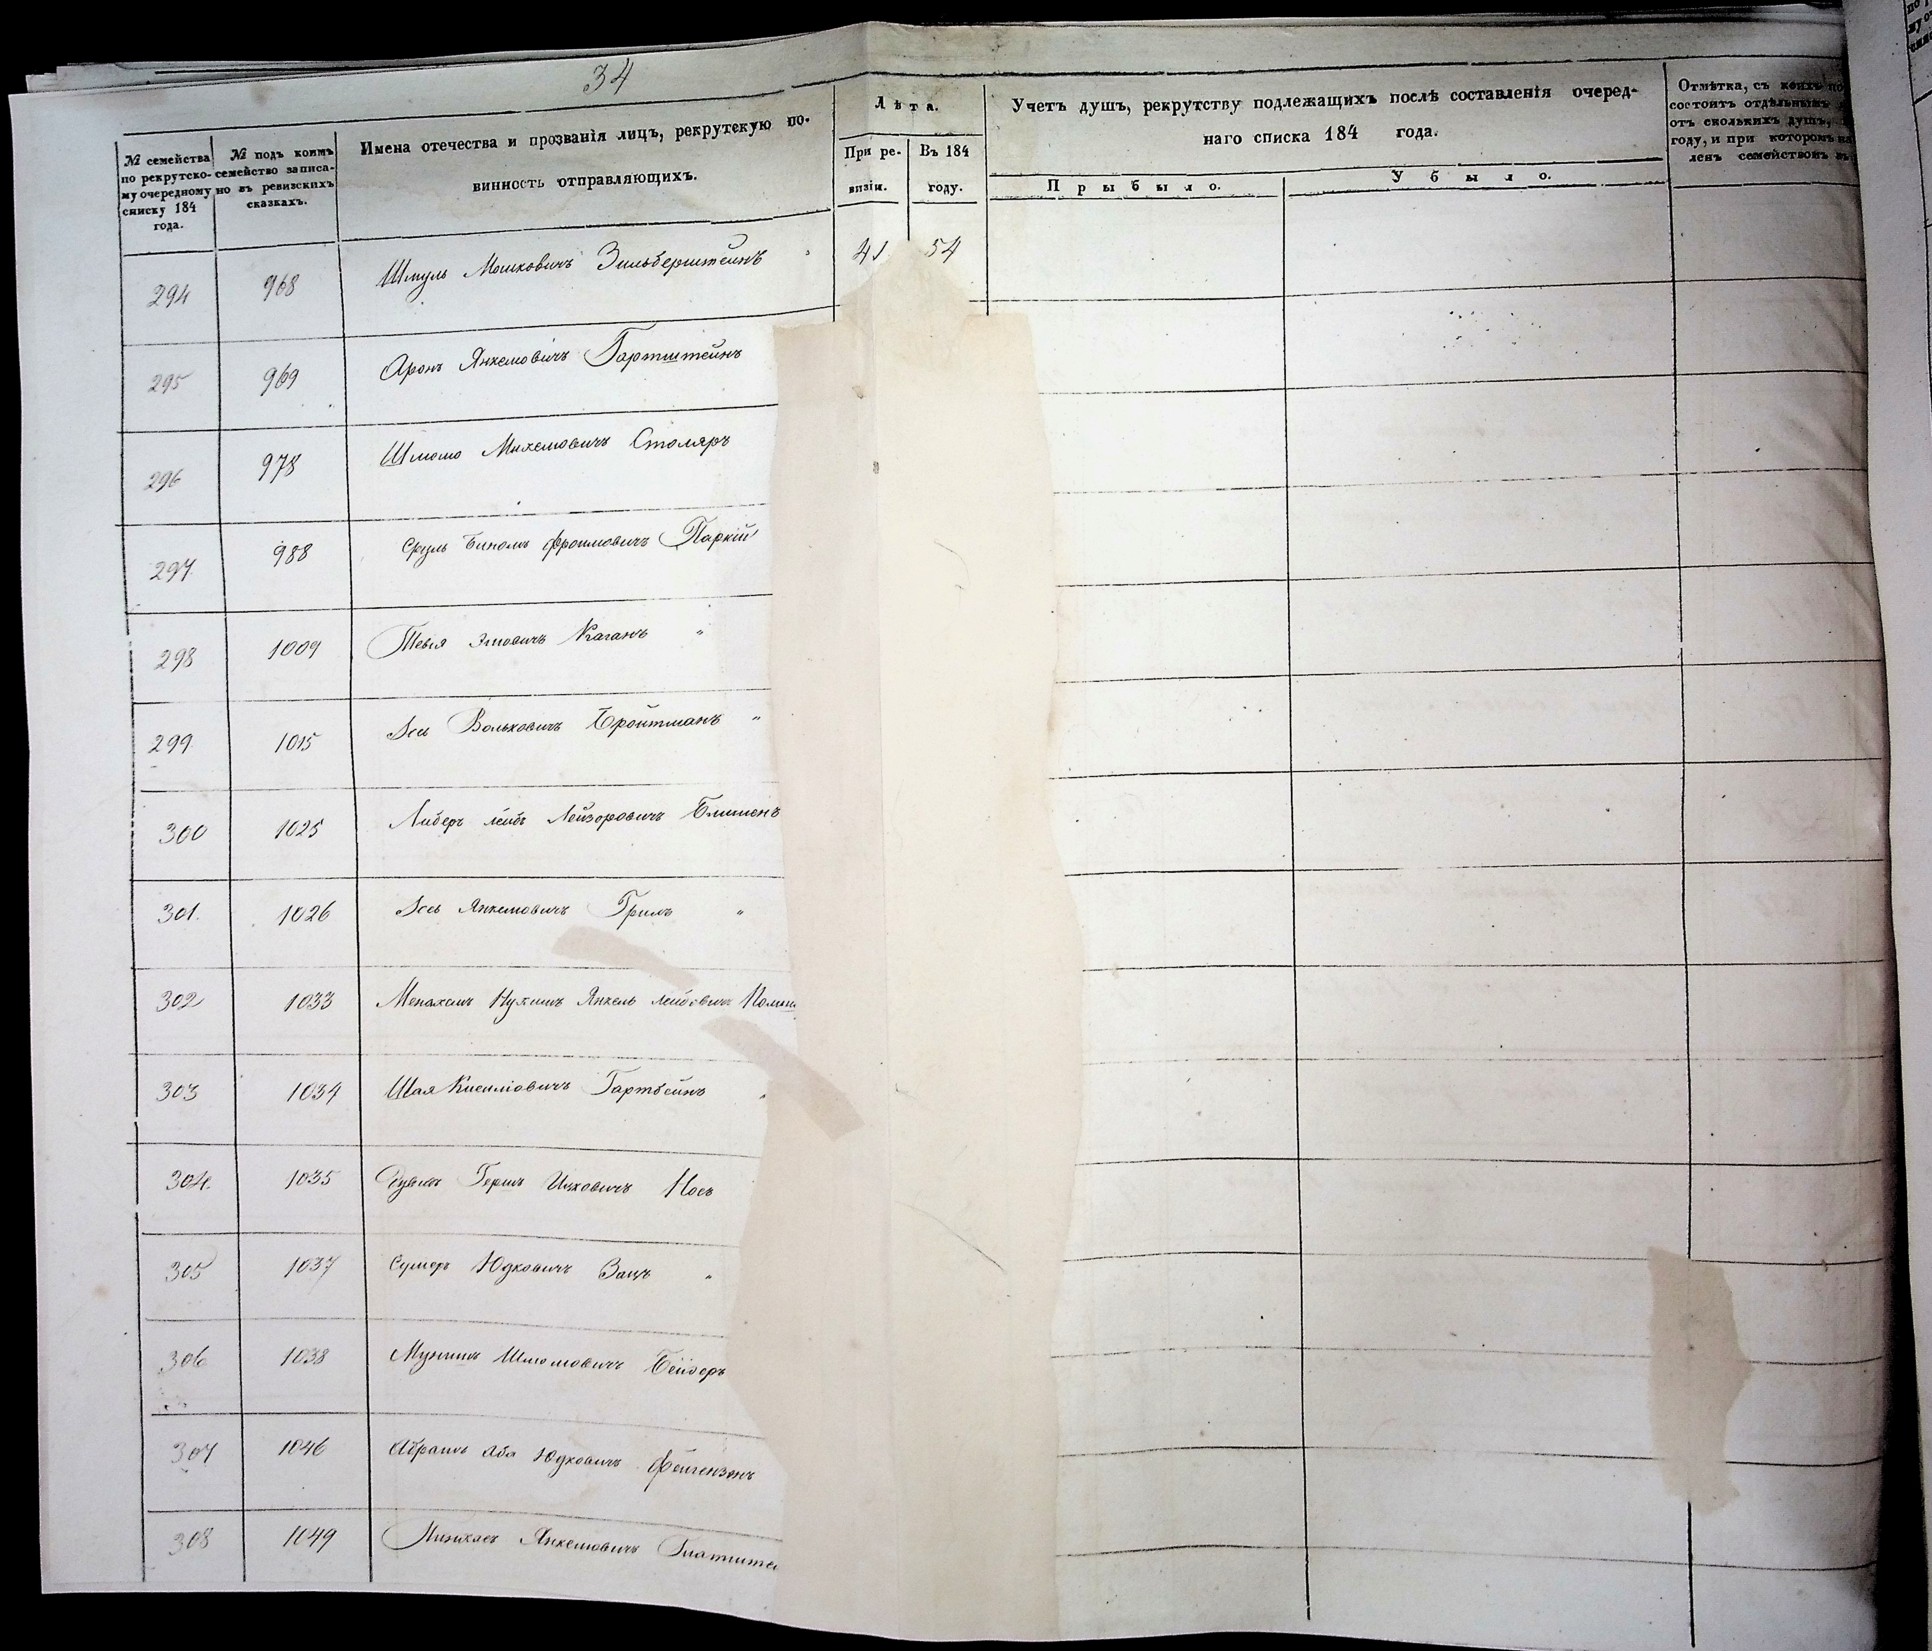 34
№ семейства по рекрутскому очередному списку 184 года.
№ подъ коимъ семейство записано въ ревизскихъ сказкахъ.
Имена отечества и прозванія лицъ, рекрутскую повинность отправляющихъ.
Лѣта.
При ревизіи.
Въ 184 году.
Учетъ душъ, рекрутству подлежащихъ послѣ составленія очереднаго списка 184 года.
Прыбыло.
Убыло.
Отмѣтка, съ коихъ по
состоитъ отдѣльнымъ
отъ сколькихъ душъ,
году, и при которомъ
ленъ семействомъ въ
294 968 Шмуль Мошковичъ Зильберштейнъ 41 54
295 969 Аронъ Янкелювичъ Гартштейнъ
296 978 Шлюмо Михелювичъ Столяръ
297 988 Сруль Бинемъ Фроимовичъ Паркій
298 1009 Тевія Эліовичъ Каганъ "
299 1015 Іось Вольковичъ Бройтманъ "
300 1025 Либеръ Лейбъ Лейзоровичъ
301. 1026 Іось Янкелювичъ "
302 1033 Менахемъ Нухимъ Янкель Лейбовичъ
303 1034 Шая Кисиліовичъ Гартбейнъ "
304. 1035 Гершъ Ицковичъ
305 1037 Сумеръ Юдковичъ Зацъ "
306 1038 Мунишъ Шлюмовичъ Бейдеръ
307 1046 Абрамъ Аба Юдковичъ Фейгензонъ
308 1049 Пинхасъ Янкелювичъ